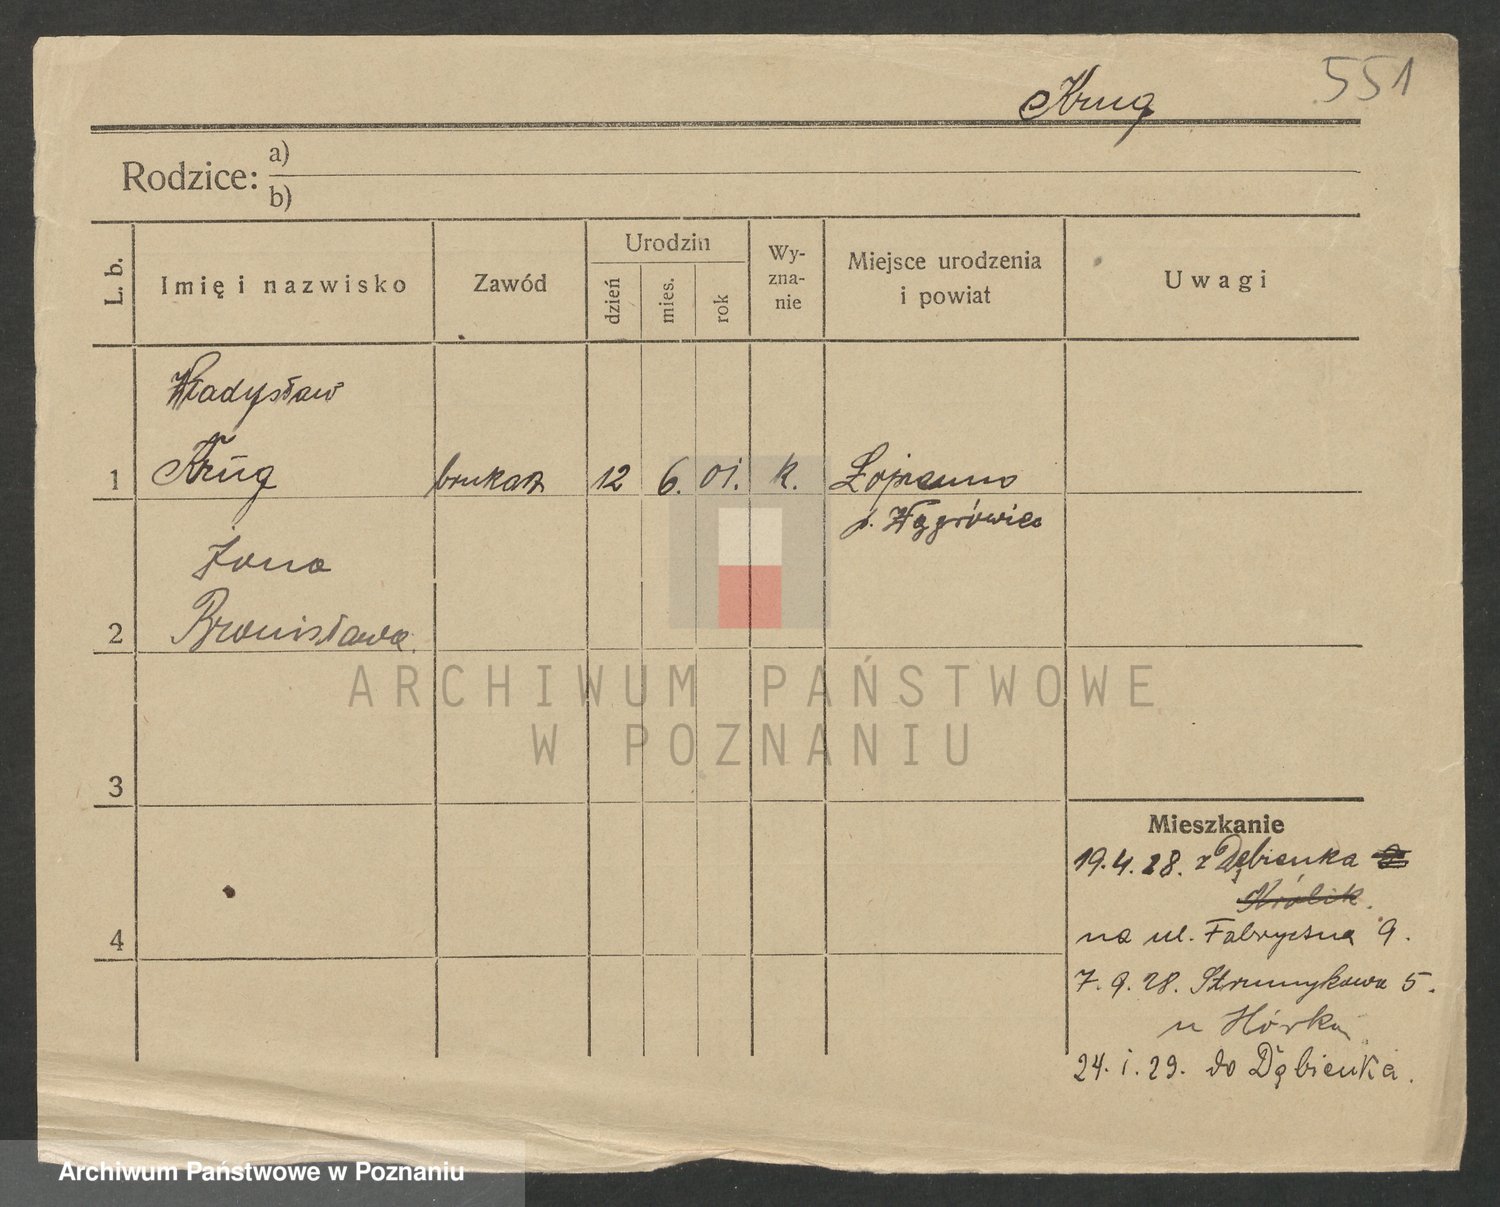 551
Krug
Rodzice: a)
b)
L. b.
Imię i nazwisko
Zawód
Urodzin
dzień
mies.
rok
Wy-
zna-
nie
Miejsce urodzenia
i powiat
Uwagi
Władysław
1 Krug brukarz 12 6. 01. k. Łopienno
p. Wągrówiec
żona
2 Bronisława
ARCHIWUM PAŃSTWOWE
W POZNANIU
3
4
Mieszkanie
19.4.28. z Dębienka
na ul. Fabryczna 9.
7.9.28. Strumykowa 5.
u Hórka
24.i.29. do Dębienka.
Archiwum Państwowe w Poznaniu